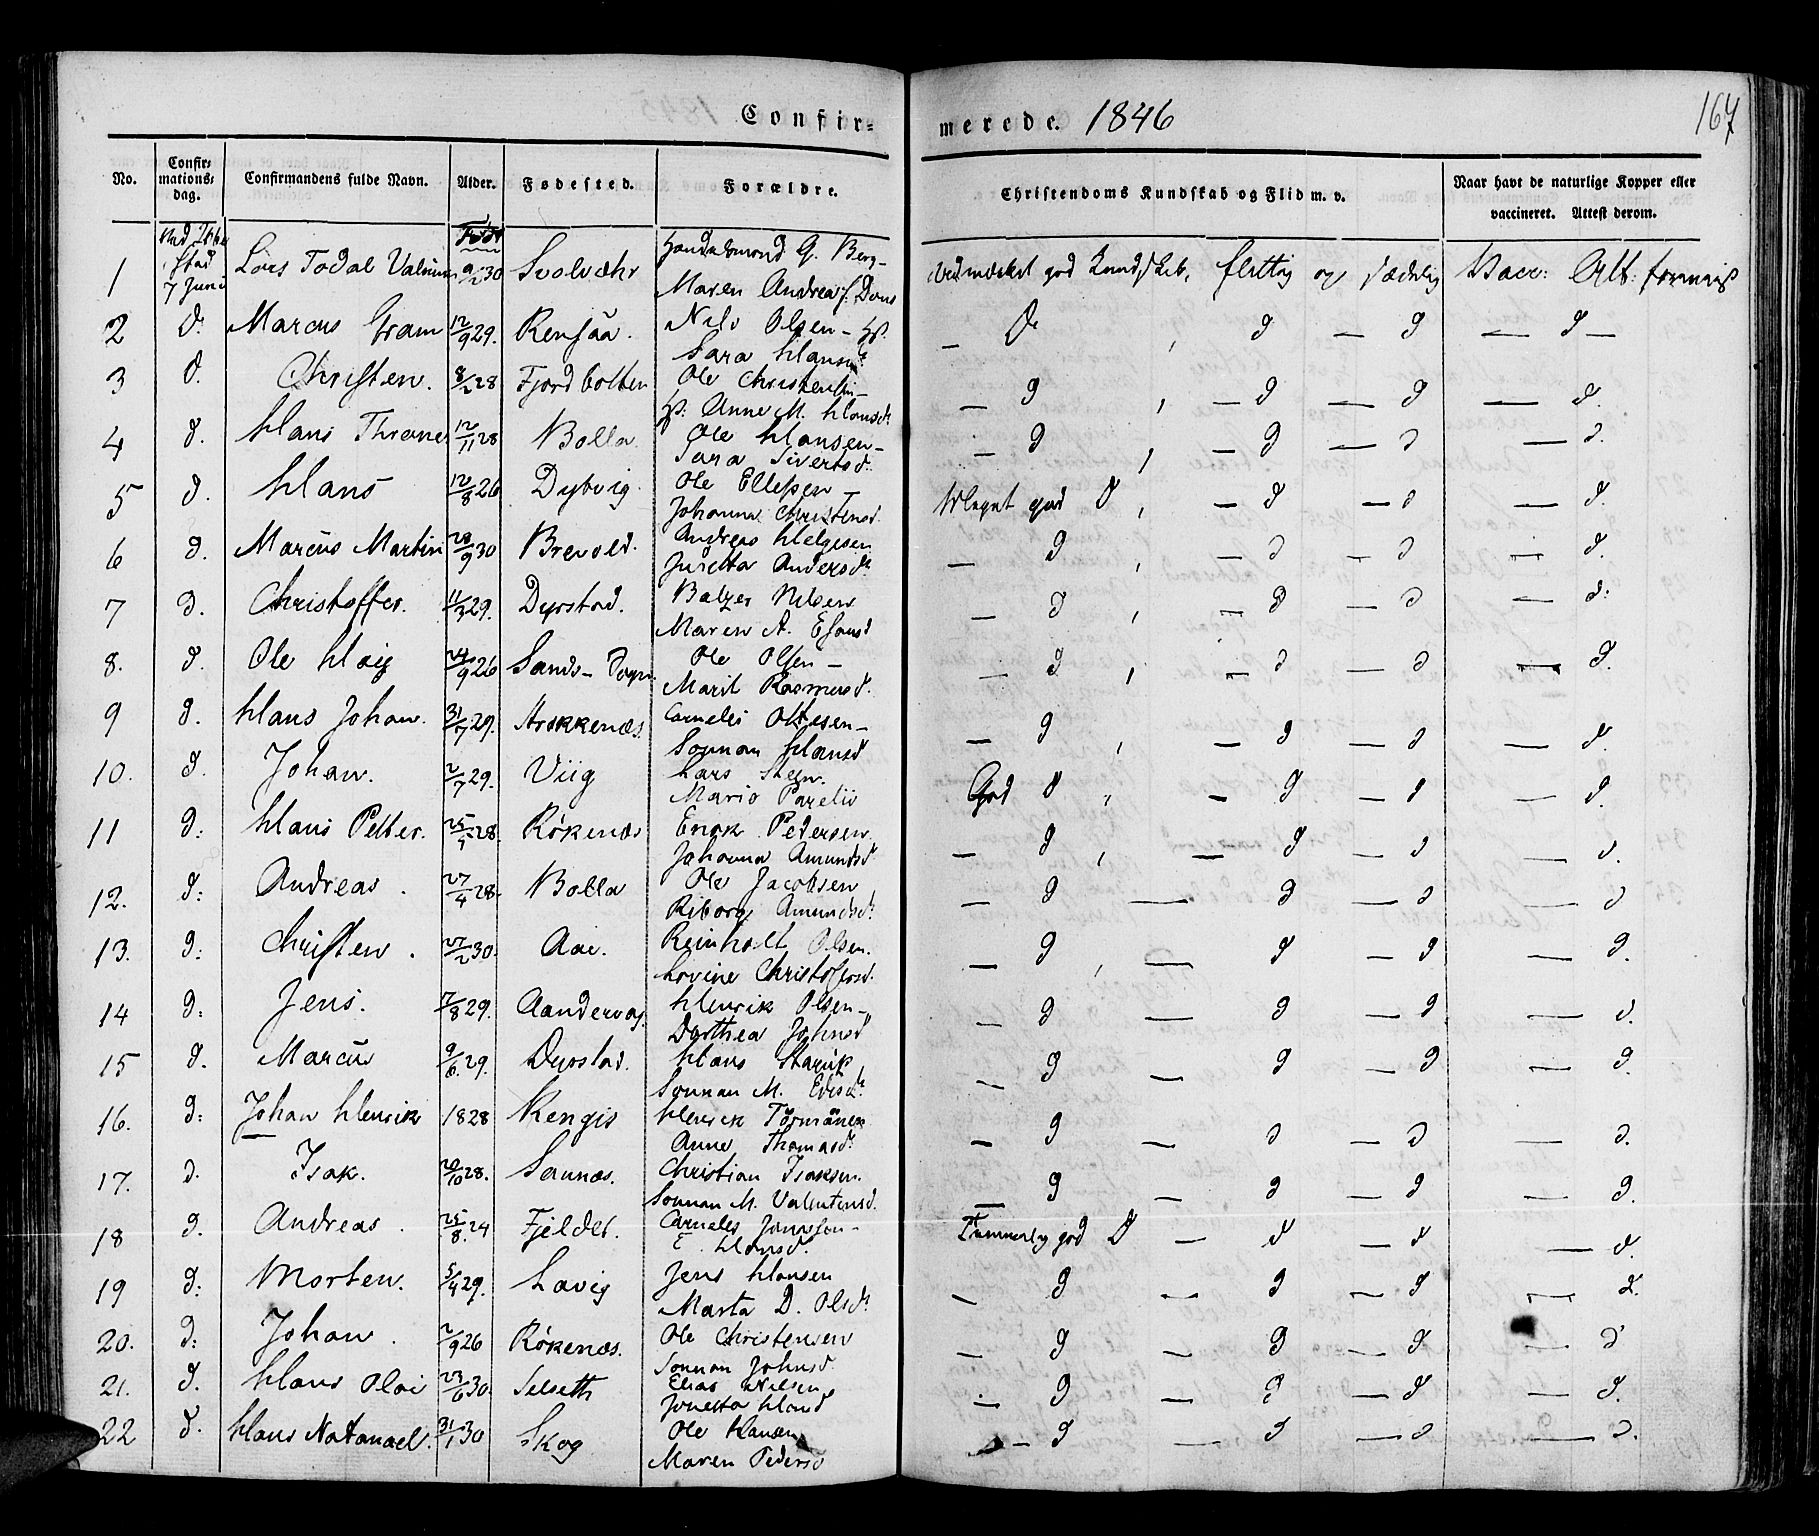 Confir=
merede. 1846
167
No.
Confir=
mations=
dag.
Confirmandens fulde Navn.
Alder.
Fødested.
Forældre.
Christendoms Kundskab og Flid m. v.
Naar havt de naturlige Kopper eller
vaccineret. Attest derom.
Født
1 Stad 7 Juni Lars Todal 9/2 30 Svolvæhr G. Berg—
Maren Andrea f: Dons
god Kundskab, flittig og sædelig Vacc: Att:
2 d: Marcus Gram 12/9 29. Rensaa. Nils Olsen—
Sara Hansd:
— d: , d — d — d —
3 d. Christen. 8/2 28 Fjordbotten Ole Christensen—
Anne M. Hansd:
— d , — d — d — d.
4 d. Hans Throne 12/11 28 Bolla Ole Hansen—
Sara Sivertsd:
— d , — d — d — d.
5 d. Hans 12/8 26 Dybvig Ole Ellefsen
Johanna Christensd.
Meget god d , — d — d — d.
6 d. Marcus Martin 28/9 30 Brevold. Andreas Helgesen
Andersd:
— d , — d — d — d.
7 d. Christoffer. 11/3 29. Dyrstad. Balzer Nilsen
Maren A. Esaisd
— d , — d — d — d:
8. d. Ole Hoig 24/9 26 Sands— Sogn. Ole Olsen—
Marit Rasmusd.
— d , — d — d — d.
9 d. Hans Johan. 31/7 29. Strokkenæs. Cornelis
Sonnan Hansd
— d , — d — d — d.
10. d. Johan. 2/7 29. Viig Lars Steen.
Maria Parelii
God d , — d — d — d.
11 d: Hans Petter. 25/1 28. Røkenæs Enok Pedersen
Johanna Amundsd
— d , — d — d — d.
12. d: Andreas. 27/4 28. Bolla Ole Jacobsen
Riborg Amundsd:
— d — d — d — d
13. d: Christen. 27/2 30. Aae. Reinholt Olsen.
Lovine Christofersd.
— d , — d — d — d.
14 d: Jens. 7/8 29. Aandervag. Henrik Olsen—
Dorthea Johnsd
— d — d — d — d.
15 d. Marcus 9/6 29. Dyrstad. Hans Starup
Sonnan M.
— d — d — d — d.
16. d: Johan Henrik 1828 Kengis Henrik Törmänen
Anne Thomasd:
— d — d — d — d.
17. d. Isak. 20/10 28. Saunæs. Christian Isaksen.
Sonnan M. Valentinsd.
— d — d — d — d.
18 d. Andreas. 25/8 24 Fjeldet. Cornelis Jonsson—
E. Hansd.
Temmelig god d — d — d — d.
19 d: Morten. 5/4 29. Lavig Jens Hansen
Marta D. Olsd:
— d — d — d — d.
20. d: Johan. 2/9 26 Røkenæs. Ole Christensen
Sonnan Johnsd.
— d — d — d — d
21. d. Hans Olai 23/6 30. Selseth Elias Nilsen
Jonetta Hansd
— d — d — d — d.
22 d. Hans Natanael. 31/1 30 Skog Ole Hansen
Maren Pedersd
— d — d — d — d.